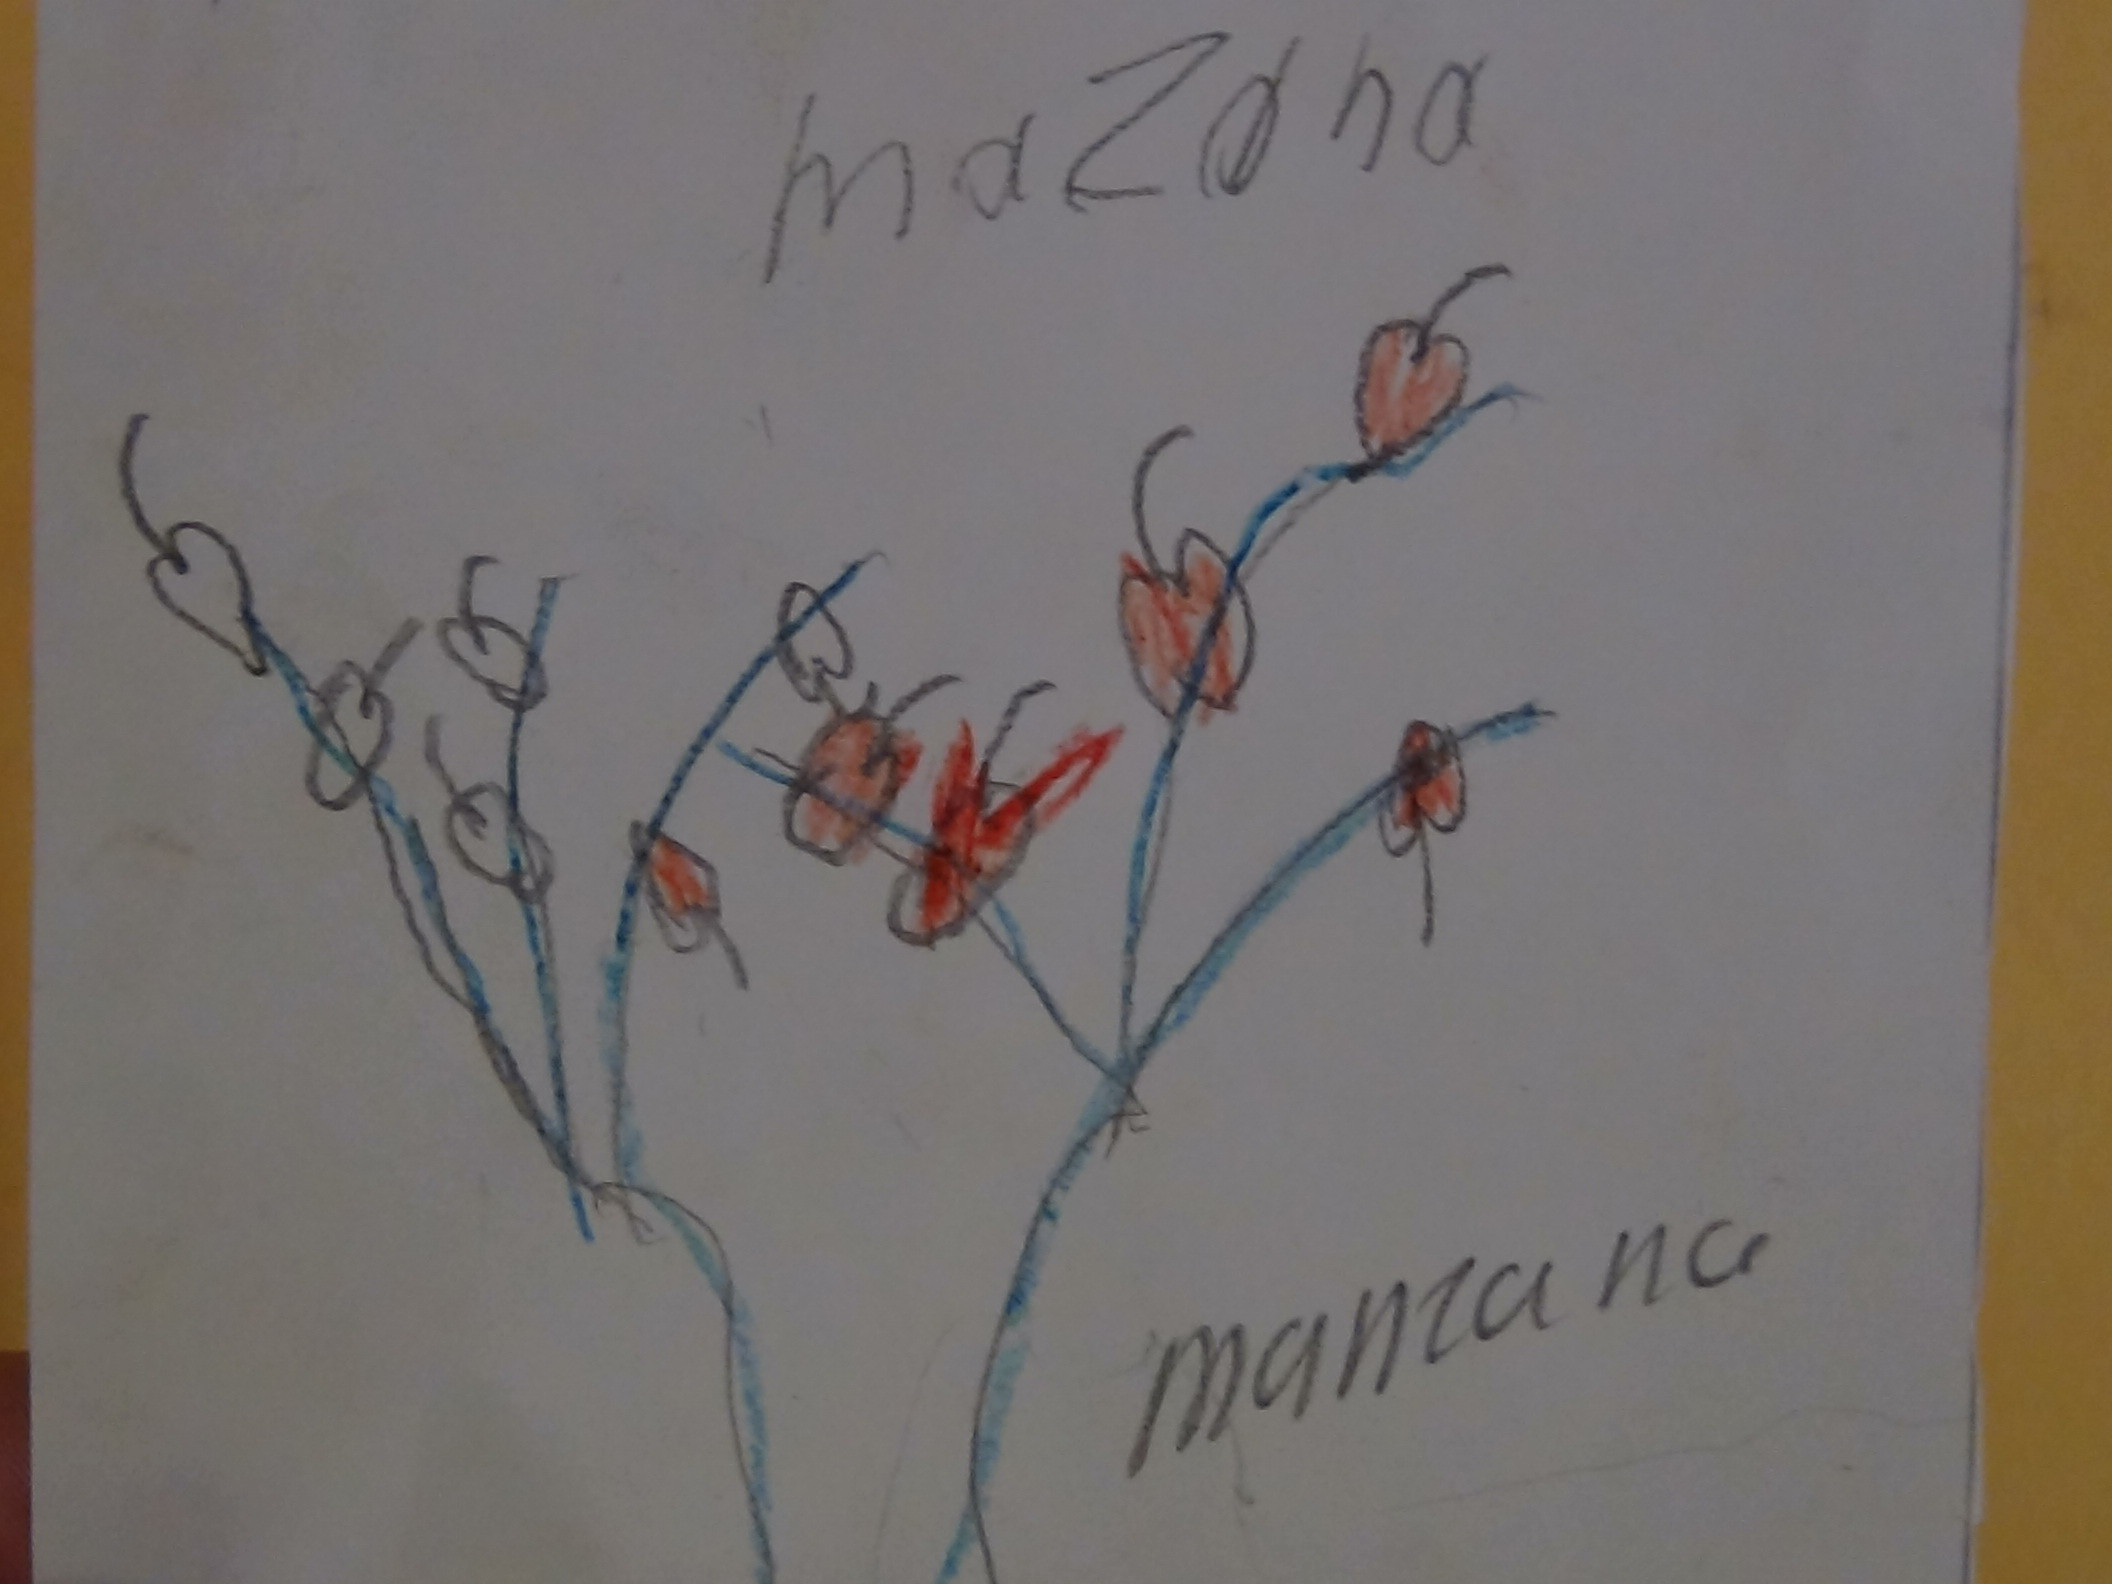 mazana
manzana